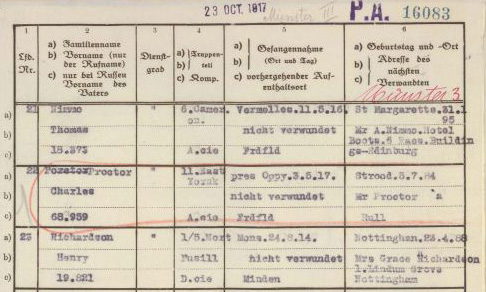 23 OCT. 1917 Munster III P.A. 16083
1 2 3 4 5 6
Lfd. Nr. a) Familienname Dienst- grad a) Truppen- teil a) Gefangennahme a) Geburtstag und -Ort
b) Vorname (nur der Rufname) b) (Ort und Tag) b) Adresse des nächsten Verwandten
c) nur bei Russen Vorname des Vaters c) Komp. c) vorhergehender Auf- enthaltsort c)
Münster 3
21 a) Nimmo " 6.Camer on. Vermelles.11.5.16. St Margarette.31.1 95
b) Thomas nicht verwundet Mr A.Nimmo.Hotel
c) 18.373 A.cie Frdfld Boots.5 Buildin gs-Edinburg
22 a) Proctor " 11.East York pres Oppy.3.5.17. Strood.5.7.84
b) Charles nicht verwundet Mr Proctor
c) 68.959 A.cie Frdfld Hull
23 a) Richardson " 1/5.Nort Mons.24.8.14. Nottingham.23.4.88
b) Henry Fusill nicht verwundet Mrs Grace Richardson
c) 19.821 D.cie Minden 1.Lindum Grove Nottingham